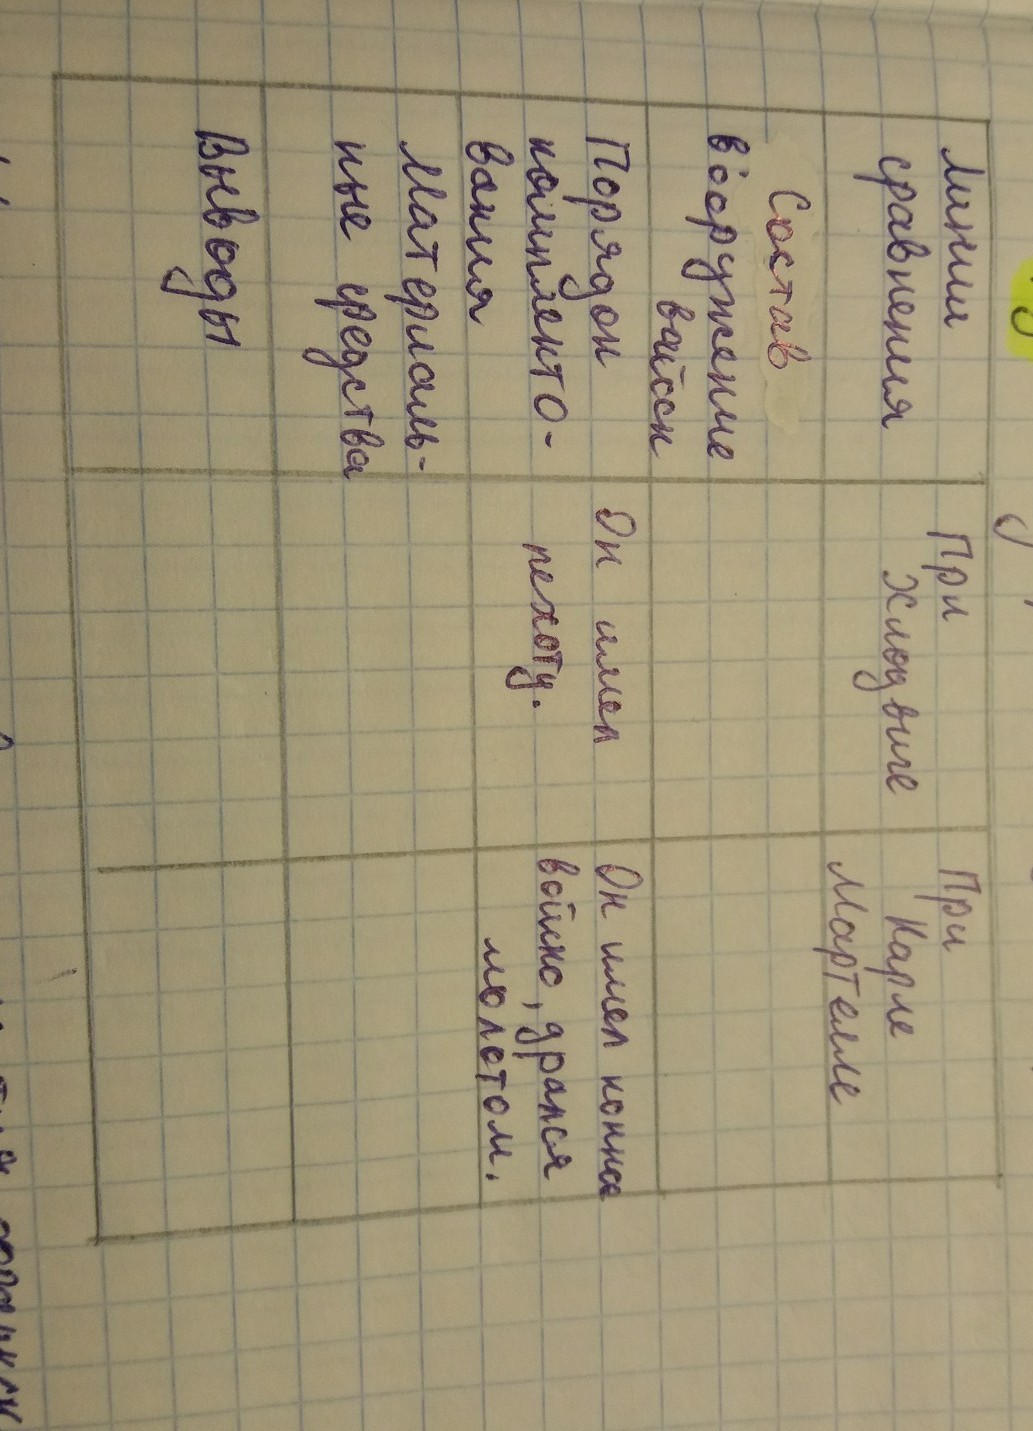 Линии
сравнения
При
Хлодвиге
При
Карле
Мартелле
Состав
вооружение
войск
Порядок
комплекто-
вания
Он имел
пехоту.
Он имел конное
войско, дрался
молотом.
Материаль-
ные средства
Выводы